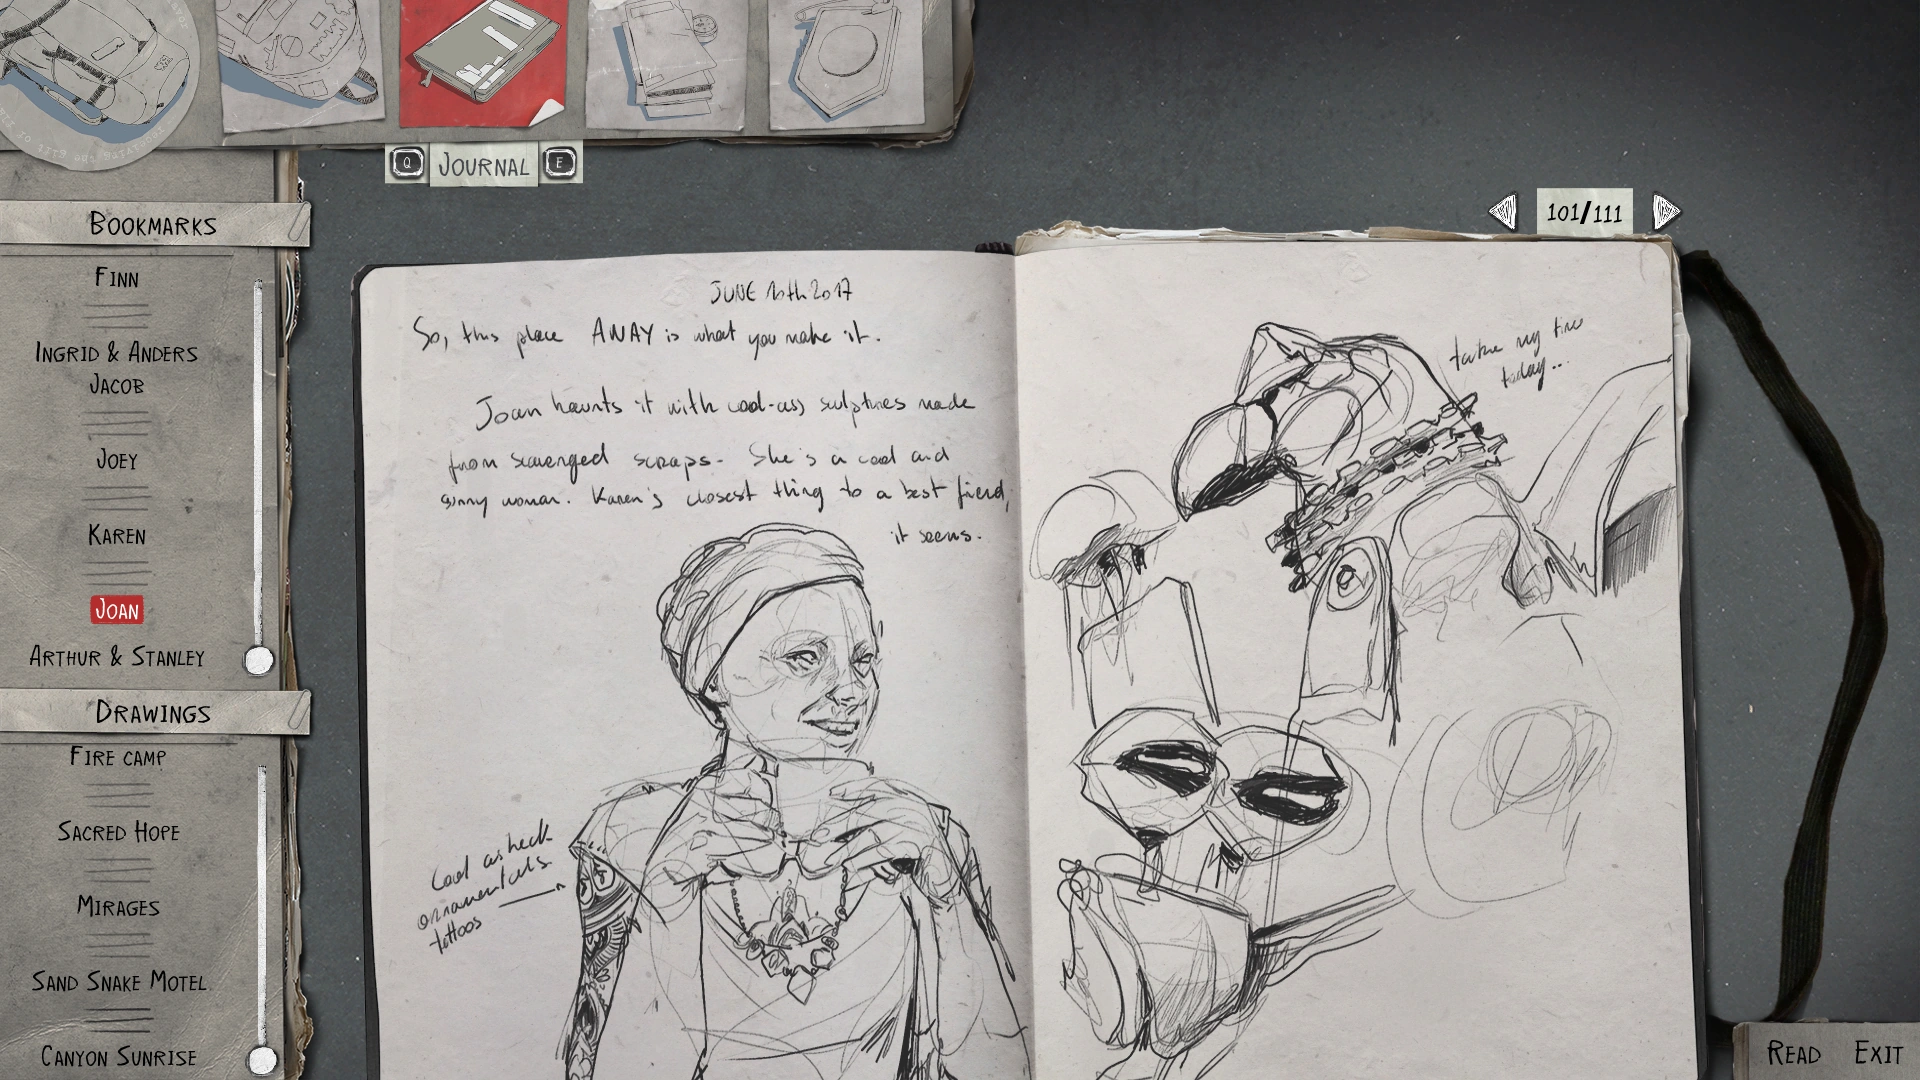 Q JOURNAL E
BOOKMARKS
FINN
INGRID & ANDERS
JACOB
JOEY
KAREN
JOAN
ARTHUR & STANLEY
DRAWINGS
FIRE CAMP
SACRED HOPE
MIRAGES
SAND SNAKE MOTEL
CANYON SUNRISE
101/111
JUNE 10th 2017
So, this place AWAY is what you make it.
Joan haunts it with cool-ass sculptures made
from scavenged scraps. She's a cool and
funny woman. Karen's closest thing to a best friend,
it seems.
Cool as heck
ornamentals
tattoos
take my time
today...
READ EXIT